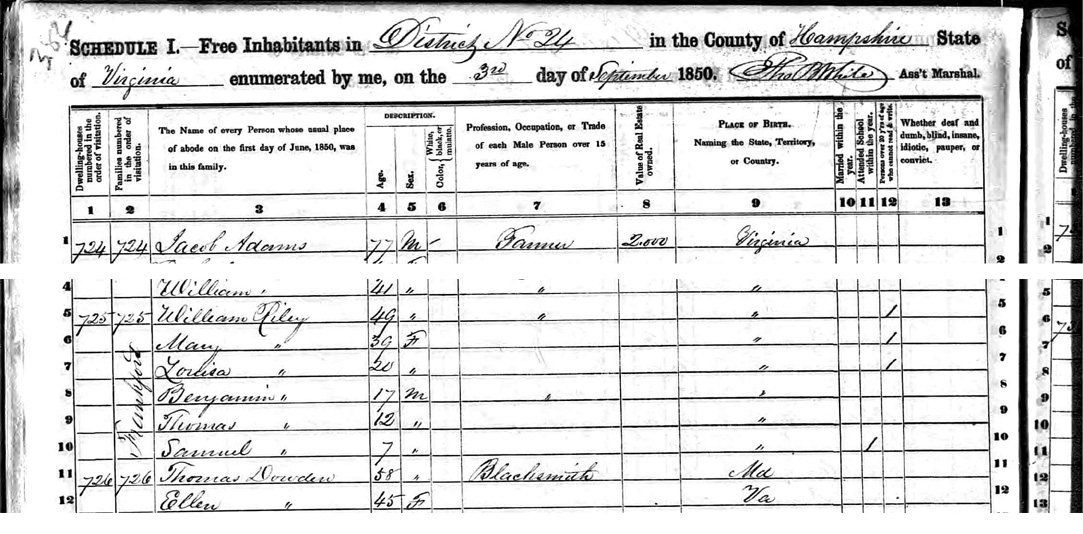 SCHEDULE I.—Free Inhabitants in District No 24 in the County of Hampshire State
of Virginia enumerated by me, on the 3rd day of September 1850. Thos B White Ass't Marshal.
Dwelling-houses numbered in the order of visitation.
Families numbered in the order of visitation.
The Name of every Person whose usual place of abode on the first day of June, 1850, was in this family.
DESCRIPTION.
Age.
Sex.
Color, { White, black, or mulatto.
Profession, Occupation, or Trade of each Male Person over 15 years of age.
Value of Real Estate owned.
PLACE OF BIRTH. Naming the State, Territory, or Country.
Married within the year.
Attended School within the year.
Persons over 20 y'rs of age who cannot read & write.
Whether deaf and dumb, blind, insane, idiotic, pauper, or convict.
1 2 3 4 5 6 7 8 9 10 11 12 13
1 724 724 Jacob Adams 77 M – Farmer 2.000 Virginia 1
2
4 William " 41 " " "
5 725 725 William Riley 49 " " " / 5
6 Mary " 39 F " / 6
7 Louisa " 20 " " / 7
8 Benjamin " 17 M " " 8
9 Thomas " 12 " " 9
10 Samuel " 7 " " / 10
11 726 726 Thomas Dowden 58 " Blacksmith Md 11
12 Ellen " 45 F Va 12